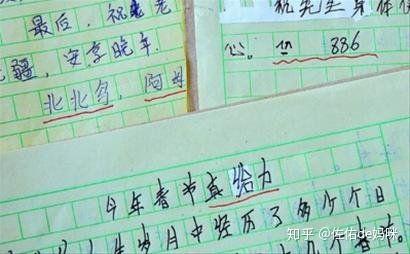 最后，祝
疆，安享晚年.
北北鸟，阿
先生身体
心。 886
今年春节真给力
岁月中经历了多少个日
知乎 @佐佑de妈咪